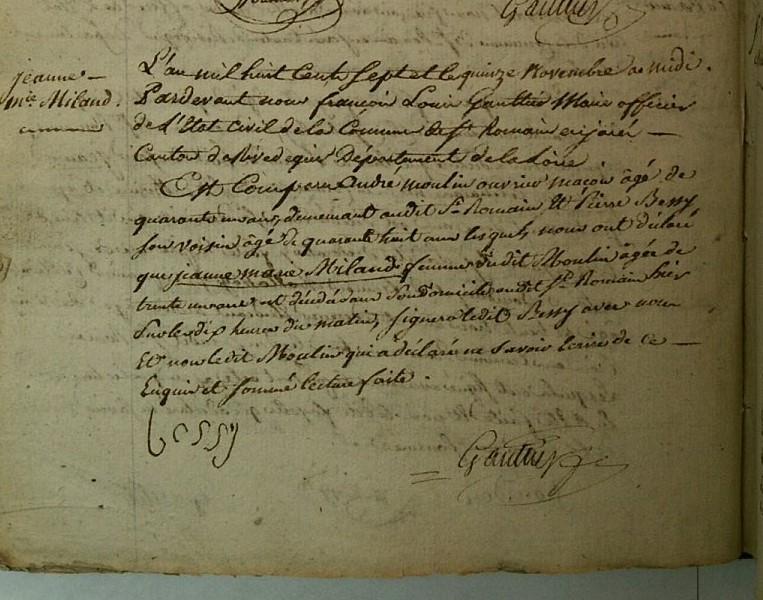 Gauttier
jeanne
Mie Miland.
L'an mil huit Cent Sept et le quinze Novembre a midi.
Pardevant nous françois Louis Gauttier Maire officier
de L'Etat Civil de la Commune de St. Romain en jarez
Canton de Rivedegier Département de la Loire
Est Comparu André moulin ouvrier maçon âgé de
quarante un ans, demeurant audit St. Romain Et Pierre Bessy
Son voisin âgé de quarante huit ans lesquels nous ont déclaré
que jeanne marie Miland femme dudit Moulin âgée de
trente un ans est décédée dans Son domicile audit St. Romain hier
Sur les dix heures du matin, Signera ledit Bessy avec nous
Et non ledit Moulin qui a déclaré ne Savoir Ecrire de Ce
Enquis et Sommé lecture faite.
bessy
Gauttier